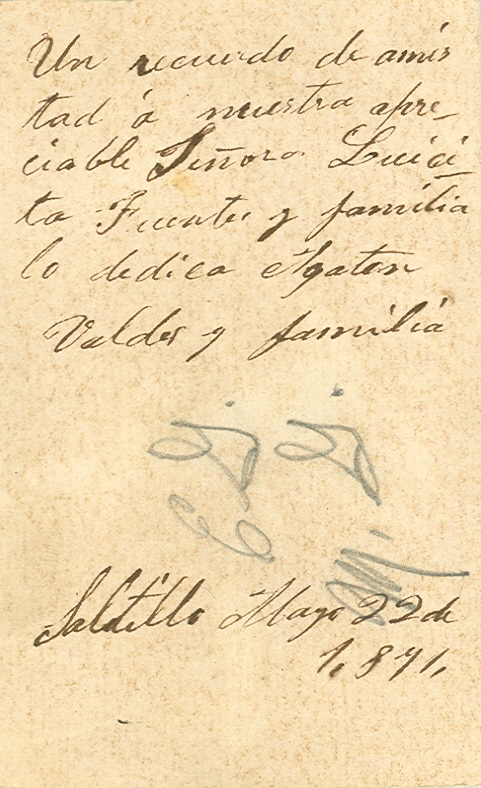 Un recuerdo de amis
tad á nuestra apre_
ciable Señora Luici
ta Fuentes y familia
lo dedica Agaton
Valdes y familia
Saltillo Mayo 22 de
1,871,